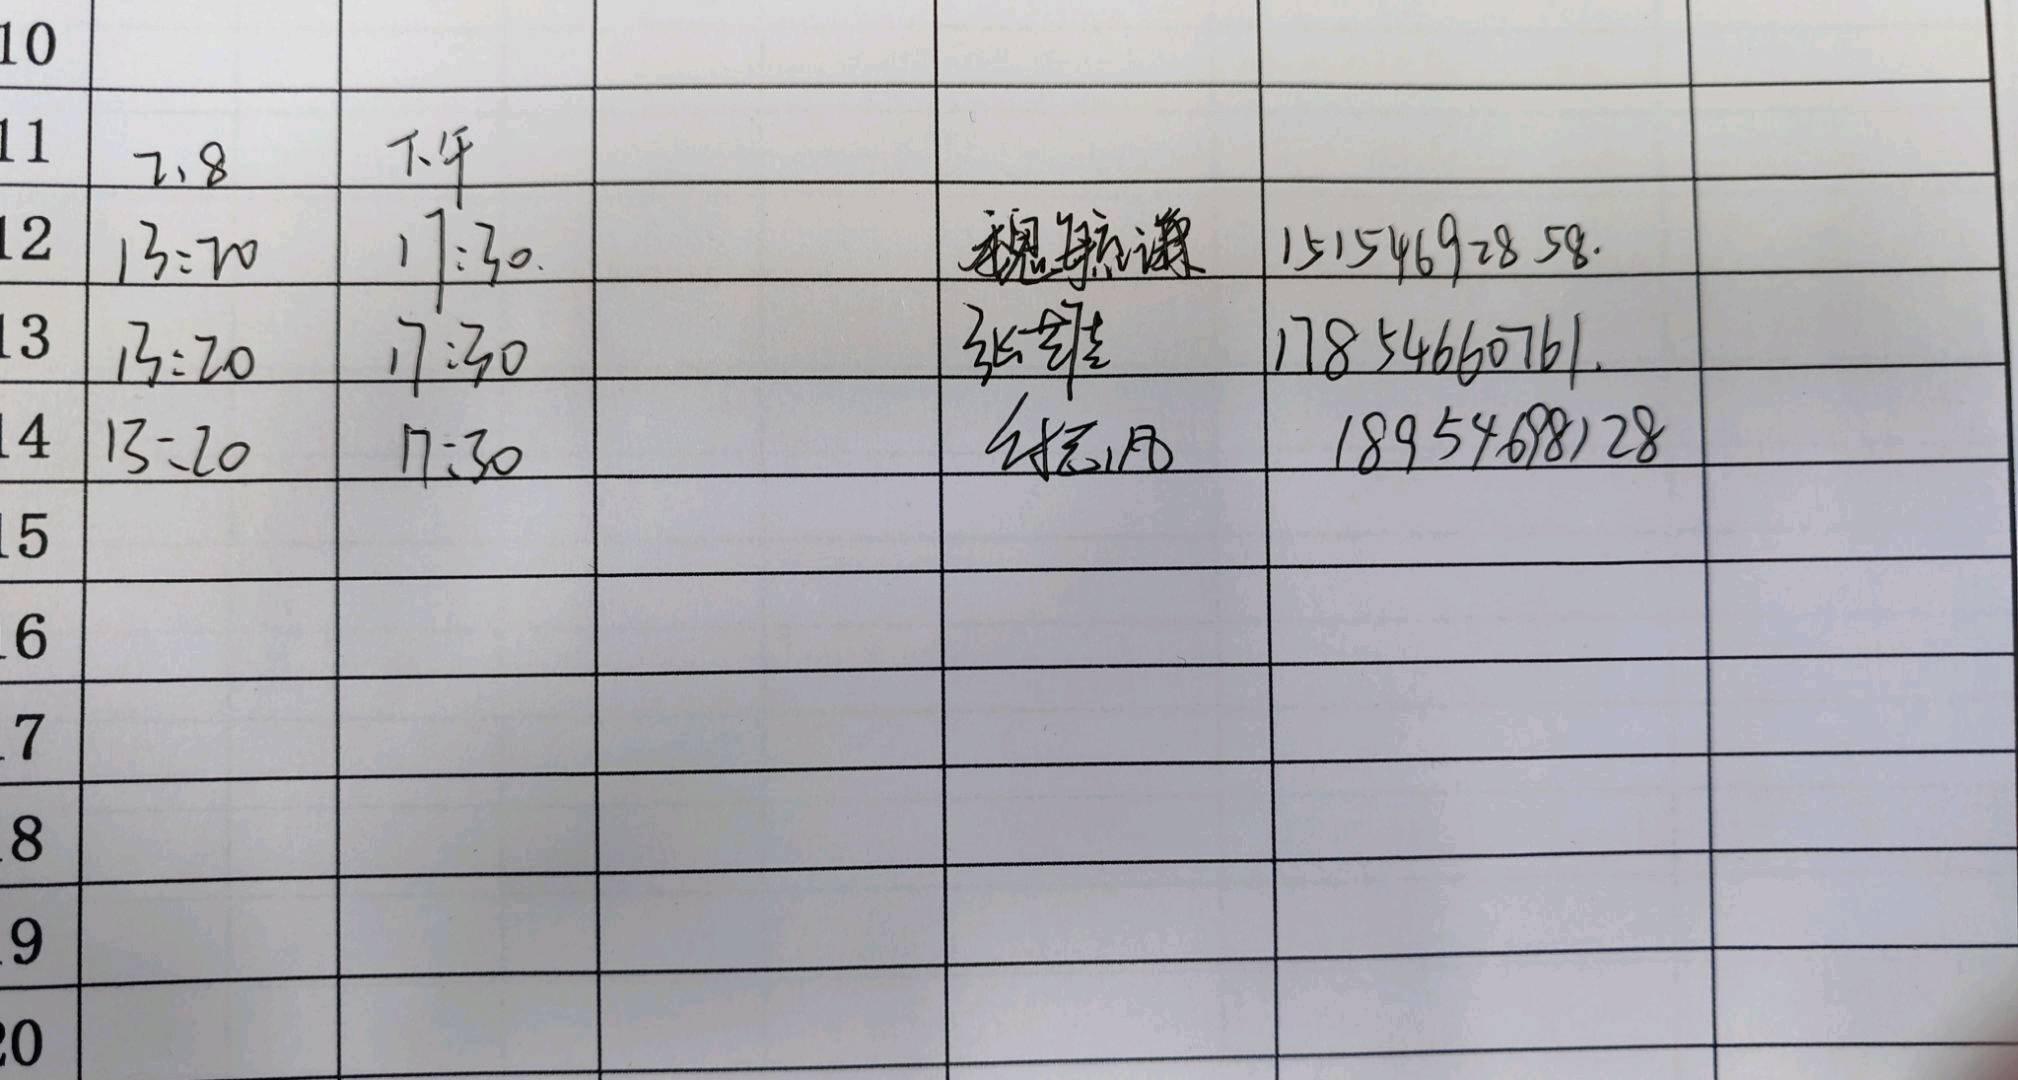 10
11 7.8 下午
12 13:20 17:30. 魏 谦 15154692858.
13 13:20 17:30 张 17854660761.
14 13:20 17:30 18954698128
15
16
17
18
19
20